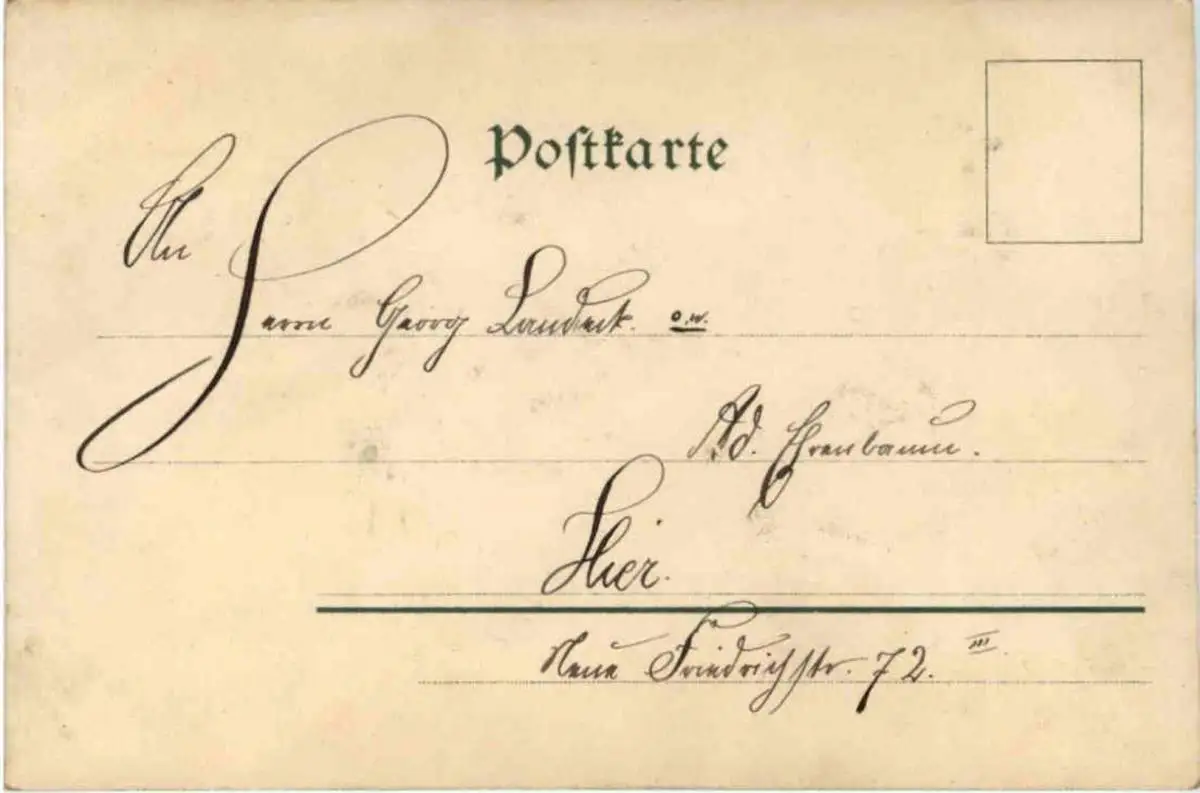 Postkarte
An
Herrn Georg Landeck. o.w.
Ad. Ehrenbaum.
Hier.
Neue Friedrichstr. 72. III